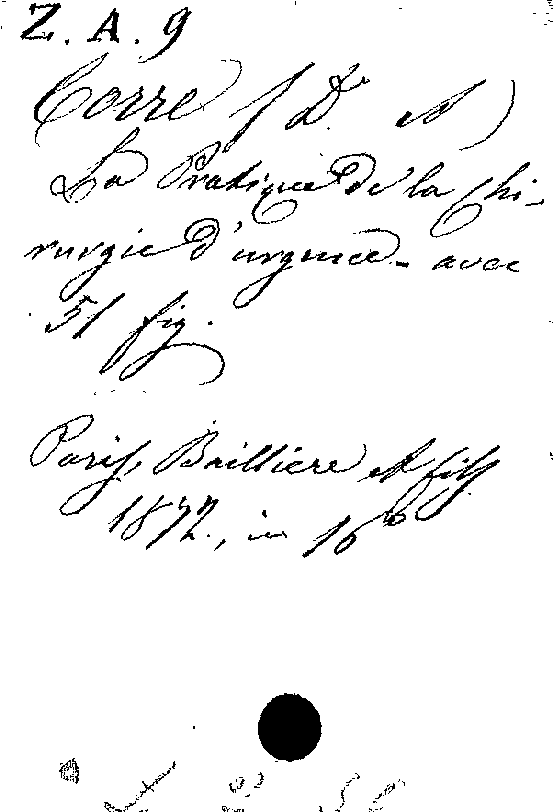 Z. A. 9
Corre (Dr A)
La Pratique de la Chi-
rurgie d'urgence - avec
51 fig.
Paris, Baillière et fils
1872., in 16º